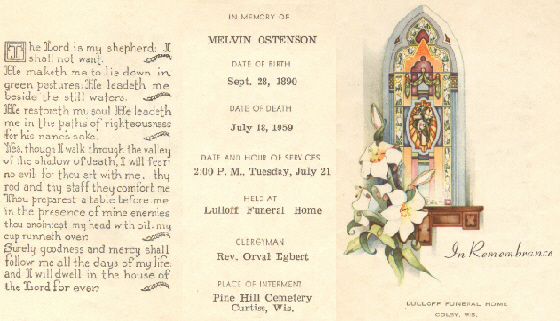 The Lord is my shepherd; I
shall not want.
He maketh me to lie down in
green pastures: He leadeth me
beside the still waters.
He restoreth my soul: He leadeth
me in the paths of righteousness
for his name's sake.
Yea, though I walk through the valley
of the shadow of death, I will fear
no evil: for thou art with me, thy
rod and thy staff they comfort me
Thou preparest a table before me
in the presence of mine enemies
thou anointest my head with oil, my
cup runneth over.
Surely goodness and mercy shall
follow me all the days of my life:
and I will dwell in the house of
the Lord for ever.
IN MEMORY OF
MELVIN OSTENSON
DATE OF BIRTH
Sept. 28, 1890
DATE OF DEATH
July 18, 1959
DATE AND HOUR OF SERVICES
2:00 P. M., Tuesday, July 21
HELD AT
Lulloff Funeral Home
CLERGYMAN
Rev. Orval Egbert
PLACE OF INTERMENT
Pine Hill Cemetery
Curtiss, Wis.
In Remembrance
LULLOFF FUNERAL HOME
COLBY, WIS.